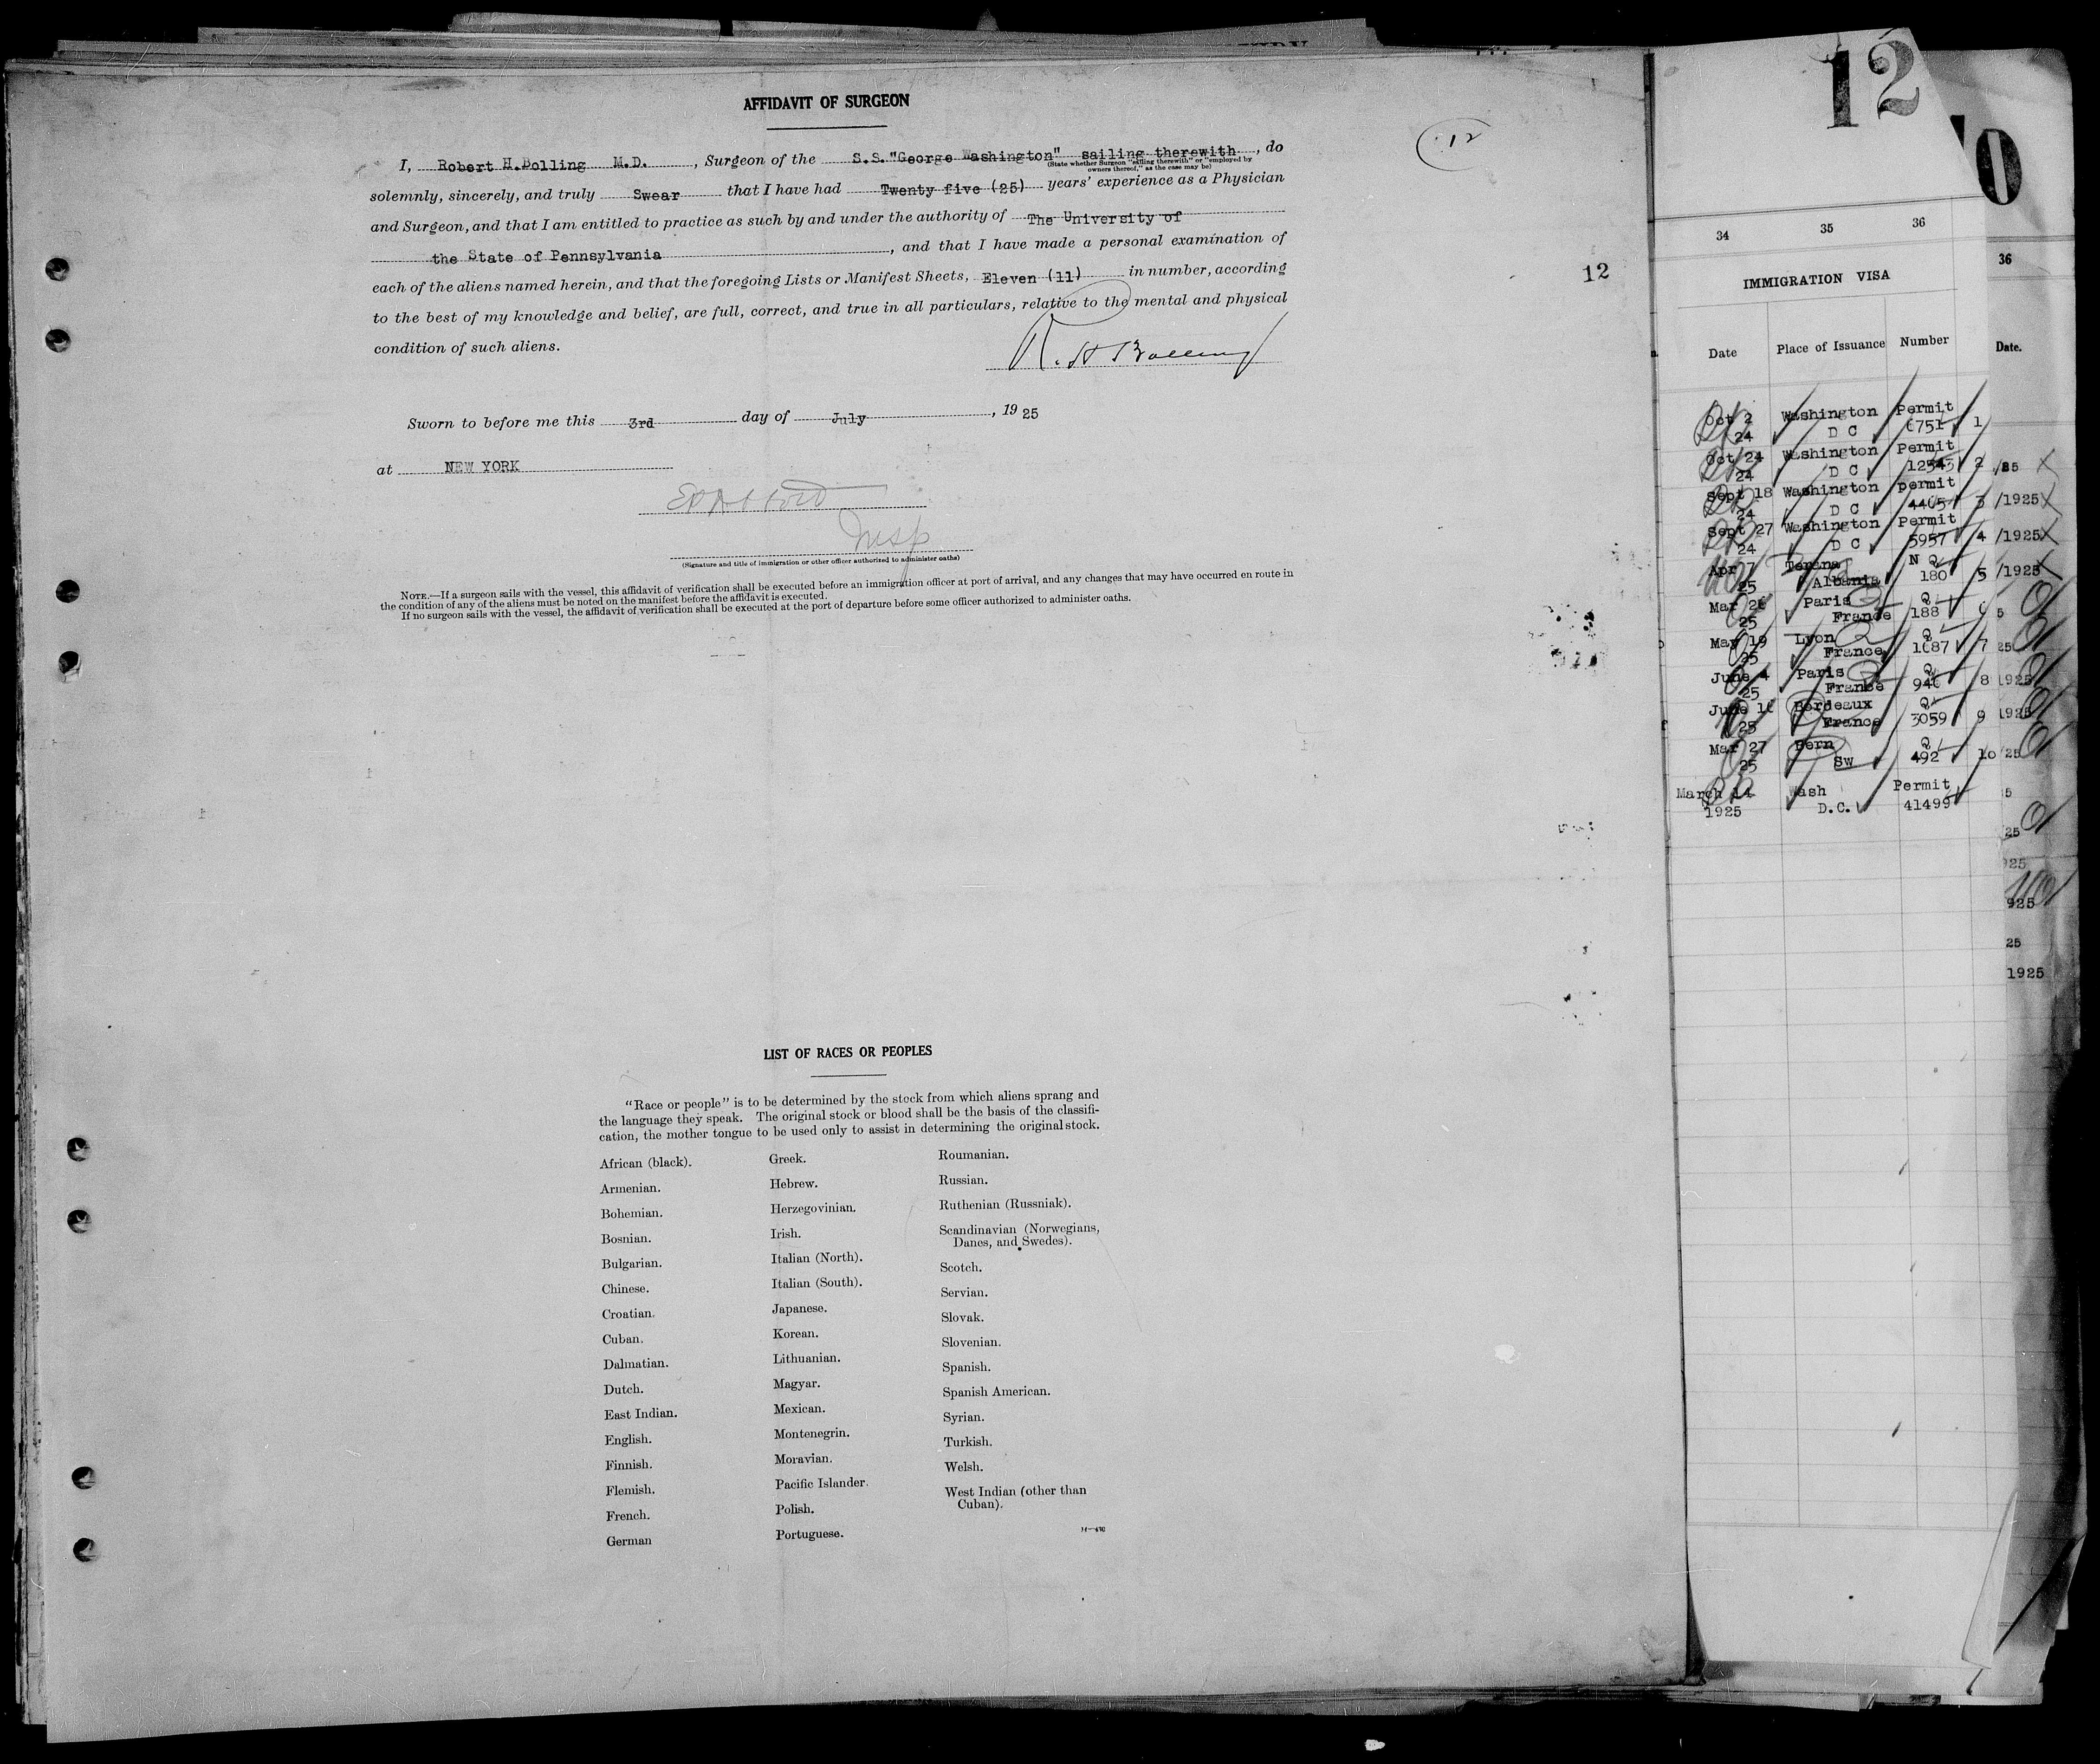 AFFIDAVIT OF SURGEON
12
I, Robert H.Bolling M.D. , Surgeon of the S.S."George Washington" sailing therewith , do
(State whether Surgeon "sailing therewith" or "employed by
owners thereof," as the case may be)
solemnly, sincerely, and truly Swear that I have had Twenty five (25) years' experience as a Physician
and Surgeon, and that I am entitled to practice as such by and under the authority of The University of
the State of Pennsylvania , and that I have made a personal examination of
each of the aliens named herein, and that the foregoing Lists or Manifest Sheets, Eleven (11) in number, according
to the best of my knowledge and belief, are full, correct, and true in all particulars, relative to the mental and physical
condition of such aliens.
R. H Bolling
12
Sworn to before me this 3rd day of July , 19 25
at NEW YORK
Insp
(Signature and title of immigration or other officer authorized to administer oaths)
NOTE.—If a surgeon sails with the vessel, this affidavit of verification shall be executed before an immigration officer at port of arrival, and any changes that may have occurred en route in
the condition of any of the aliens must be noted on the manifest before the affidavit is executed.
If no surgeon sails with the vessel, the affidavit of verification shall be executed at the port of departure before some officer authorized to administer oaths.
LIST OF RACES OR PEOPLES
"Race or people" is to be determined by the stock from which aliens sprang and
the language they speak. The original stock or blood shall be the basis of the classifi-
cation, the mother tongue to be used only to assist in determining the original stock.
African (black).
Armenian.
Bohemian.
Bosnian.
Bulgarian.
Chinese.
Croatian.
Cuban.
Dalmatian.
Dutch.
East Indian.
English.
Finnish.
Flemish.
French.
German
Greek.
Hebrew.
Herzegovinian.
Irish.
Italian (North).
Italian (South).
Japanese.
Korean.
Lithuanian.
Magyar.
Mexican.
Montenegrin.
Moravian.
Pacific Islander.
Polish.
Portuguese.
Roumanian.
Russian.
Ruthenian (Russniak).
Scandinavian (Norwegians,
Danes, and Swedes).
Scotch.
Servian.
Slovak.
Slovenian.
Spanish.
Spanish American.
Syrian.
Turkish.
Welsh.
West Indian (other than
Cuban).
12
34 35 36
IMMIGRATION VISA
Date Place of Issuance Number
Oct 2 Washington Permit
24 D C 6751 1
Oct 24 Washington Permit
24 D C 12343 2
Sept 18 Washington permit
24 D C 4465 3
Sept 27 Washington Permit
24 D C 5957 4
Apr 7 Terana N Q
25 Albania 180 5
Mar 26 Paris Q
25 France 188 6
May 19 Lyon Q
25 France 1687 7
June 4 Paris Q
25 France 946 8
June 16 Bordeaux Q
25 France 3059 9
Mar 27 Bern Q
25 Sw 492 10
March 14 Wash Permit
1925 D.C. 41499
0
36
Date.
/25
/1925
/1925
/1925
5
25
1925
1925
/25
5
25
925
925
25
1925